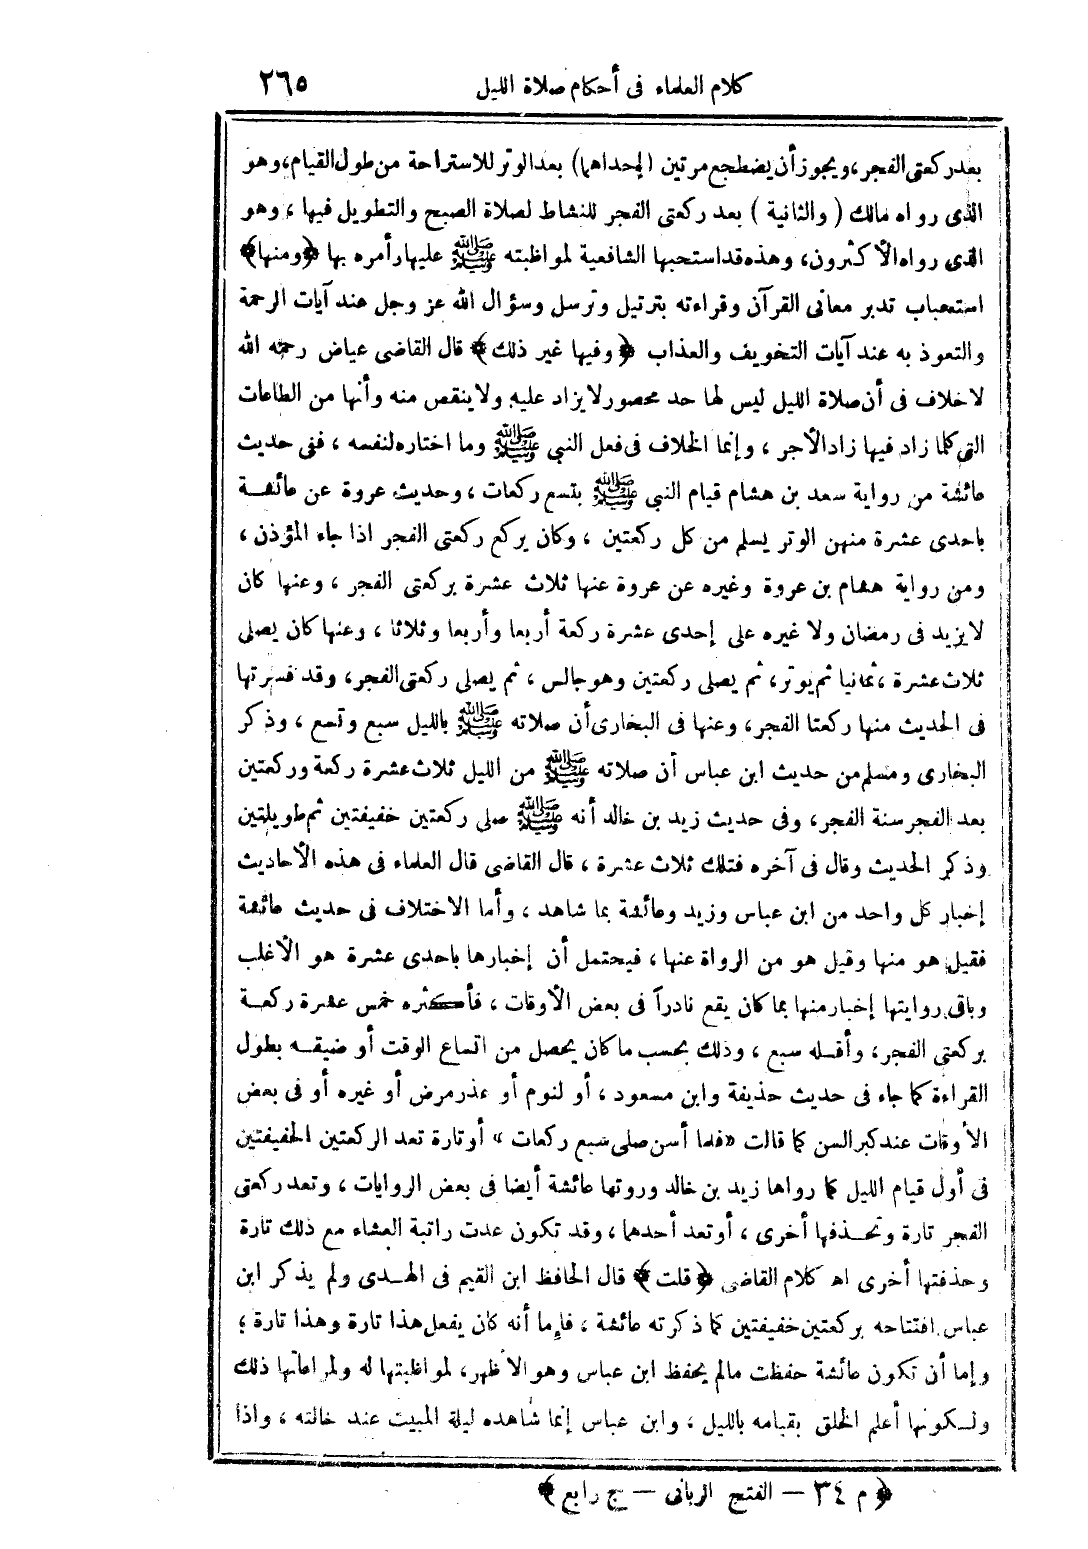 كلام العلماء فى أحكام صلاة الليل ٢٦٥
بعد ركعتى الفجر ، ويجوز أن يضطجع مرتين (إحداهما) بعد الوتر للاستراحة من طول القيام ، وهو
الذى رواه مالك ( والثانية ) بعد ركعتى الفجر للنشاط لصلاة الصبح والتطويل فيها ، وهو
الذى رواه الأكثرون، وهذه قد استحبها الشافعية لمواظبته ﷺ عليها وأمره بها ﴿ومنها﴾
استحباب تدبر معانى القرآن وقراءته بترتيل وترسل وسؤال الله عز وجل عند آيات الرحمة
والتعوذ به عند آيات التخويف والعذاب ﴿ وفيها غير ذلك ﴾ قال القاضى عياض رحمه الله
لاخلاف فى أن صلاة الليل ليس لها حد محصور لا يزاد عليه ولا ينقص منه وأنها من الطاعات
التى كلما زاد فيها زاد الأجر ، وإنما الخلاف فى فعل النبى ﷺ وما اختاره لنفسه ، ففى حديث
عائشة من رواية سعد بن هشام قيام النبى ﷺ بتسع ركعات ، وحديث عروة عن عائشة
باحدى عشرة منهن الوتر يسلم من كل ركعتين ، وكان يركع ركعتى الفجر اذا جاء المؤذن ،
ومن رواية هشام بن عروة وغيره عن عروة عنها ثلاث عشرة بركعتى الفجر ، وعنها كان
لا يزيد فى رمضان ولا غيره على إحدى عشرة ركعة أربعا وأربعا وثلاثا ، وعنها كان يصلى
ثلاث عشرة ، ثمانيا ثم يوتر، ثم يصلى ركعتين وهو جالس ، ثم يصلى ركعتى الفجر، وقد فسرتها
فى الحديث منها ركعتا الفجر، وعنها فى البخارى أن صلاته ﷺ بالليل سبع وتسع ، وذكر
البخارى ومسلم من حديث ابن عباس أن صلاته ﷺ من الليل ثلاث عشرة ركعة وركعتين
بعد الفجر سنة الفجر، وفى حديث زيد بن خالد أنه ﷺ صلى ركعتين خفيفتين ثم طويلتين
وذكر الحديث وقال فى آخره فتلك ثلاث عشرة ، قال القاضى قال العلماء فى هذه الأحاديث
إخبار كل واحد من ابن عباس وزيد وعائشة بما شاهد ، وأما الاختلاف فى حديث عائشة
فقيل هو منها وقيل هو من الرواة عنها ، فيحتمل أن إخبارها باحدى عشرة هو الأغلب
وباقى روايتها إخبار منها بما كان يقع نادراً فى بعض الأوقات ، فأكثره خمس عشرة ركعة
بركعتى الفجر، وأقله سبع ، وذلك بحسب ما كان يحصل من اتساع الوقت أو ضيقه بطول
القراءة كما جاء فى حديث حذيفة وابن مسعود ، أو لنوم أو عذر مرض أو غيره أو فى بعض
الأوقات عند كبر السن كما قالت «فلما أسن صلى سبع ركعات» أو تارة تعد الركعتين الخفيفتين
فى أول قيام الليل كما رواها زيد بن خالد وروتها عائشة أيضا فى بعض الروايات ، وتعد ركعتى
الفجر تارة وتحذفها أخرى ، أو تعد أحدهما ، وقد تكون عدت راتبة العشاء مع ذلك تارة
وحذفتها أخرى اه كلام القاضى ﴿ قلت ﴾ قال الحافظ ابن القيم فى الهدى ولم يذكر ابن
عباس افتتاحه بركعتين خفيفتين كما ذكرته عائشة ، فإما أنه كان يفعل هذا تارة وهذا تارة ؛
وإما أن تكون عائشة حفظت مالم يحفظ ابن عباس وهو الأظهر، لمواظبتها له ولمراعاتها ذلك
ولكونها أعلم الخلق بقيامه بالليل ، وابن عباس إنما شاهده ليلة المبيت عند خالته ، واذا
﴿ م ٣٤ — الفتح الربانى — ج رابع ﴾